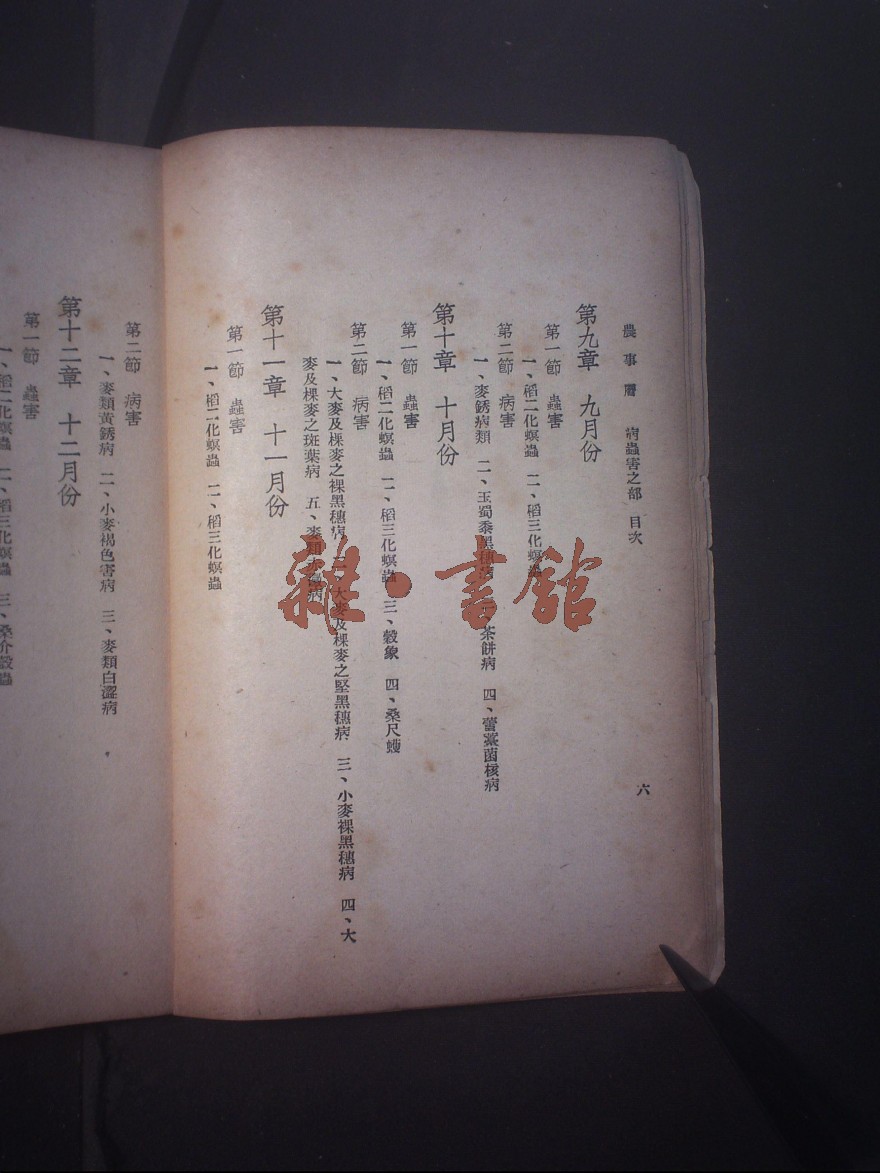 農事曆 病蟲害之部 目次
六
第九章 九月份
第一節 蟲害
一、稻二化螟蟲 二、稻三化螟蟲
第二節 病害
一、麥銹病類 二、玉蜀黍黑穗病 三、茶餅病 四、蕓薹菌核病
第十章 十月份
第一節 蟲害
一、稻二化螟蟲 二、稻三化螟蟲 三、穀象 四、桑尺蠖
第二節 病害
一、大麥及稞麥之裸黑穗病 二、大麥及稞麥之堅黑穗病 三、小麥裸黑穗病 四、大
麥及稞麥之斑葉病 五、麥類 病
第十一章 十一月份
第一節 蟲害
一、稻二化螟蟲 二、稻三化螟蟲
第二節 病害
一、麥類黃銹病 二、小麥褐色害病 三、麥類白澀病
第十二章 十二月份
第一節 蟲害
一、稻二化螟蟲 二、稻三化螟蟲 三、桑介殼蟲
雜·書館